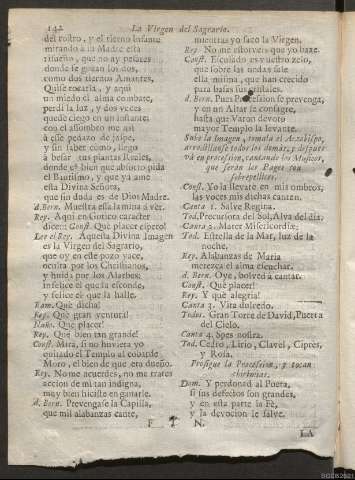 142 La Virgen del Sagrario.
del rostro, y el tierno Infante
mirando à la Madre està
risueño, que no ay pesares
donde se gozan los dos,
como dos tiernos Amantes,
Quise tocarla, y aqui
un miedo el alma combate,
perdì la luz, y dos veces
quedè ciego en un instante:
con el assombro me asì
à esse pedazo de jaspe,
y sin saber còmo, llego
à besar tus plantas Reales,
donde que el abismo pida
el Bautismo, y que ya ame
esta Divina Señora,
que sin duda es de Dios Madre.
d. Bern. Muestra essa lamina à ver.
Rey. Aqui en Gotico caracter
dice: Const. Què placer espero!
Lee el Rey. Aquesta Divina Imagen
es la Virgen del Sagrario,
que oy en este pozo yace,
oculta por los Christianos,
y huida por los Alarbes:
infelice el que la esconde,
y felice el que la halle.
Ram. Què dicha!
Rey. Què gran ventura!
Nuño. Què placer!
Rey. Què bien tan grande!
Const. Mira, si no huviera yo
quitado el Templo al cobarde
Moro, el bien de que era dueño.
Rey. No me acuerdes, no me trates
accion de mi tan indigna,
muy bien hiciste en ganarle.
d. Bern. Prevengase la Capilla,
que mil alabanzas cante,
mientras yo saco la Virgen.
Rey. No me estorveis que yo baxe.
Const. Escusado es vuestro zelo,
que sobre las ondas sale
ella misma, que han crecido
para basas sus cristales.
d. Bern. Pues Procession se prevenga,
y en un Altar se consagre,
hasta que Varon devoto
mayor Templo la levante.
Sube la Imagen, tomala el Arzobispo,
arrodillanse todos los demàs, y despues
và en procession, cantando los Musicos,
que seràn los Pages con
sobrepellices.
Const. Yo la llevare en mis ombros,
las voces mis dichas canten.
Canta 1. Salve Regina.
Tod. Precursora del Sol, Alva del dia.
Canta 2. Mater Misericordiæ;
Tod. Estrella de la Mar, luz de la
noche.
Rey. Alabanzas de Maria
merezca el alma escuchar.
d. Bern. Oye, bolved à cantar.
Const. Què placer!
Rey. Y què alegria!
Canta 3. Vita dulcedo.
Todos. Gran Torre de David, Puerta
del Cielo.
Canta 4. Spes nostra.
Tod. Cedro, Lirio, Clavel, Cipres,
y Rosa.
Prosigue la Procession, y tocan
chirimias.
Dom. Y perdonad al Poeta,
si sus defectos son grandes,
y en esta parte la Fè,
y la devocion se salve.
F I N.
LA